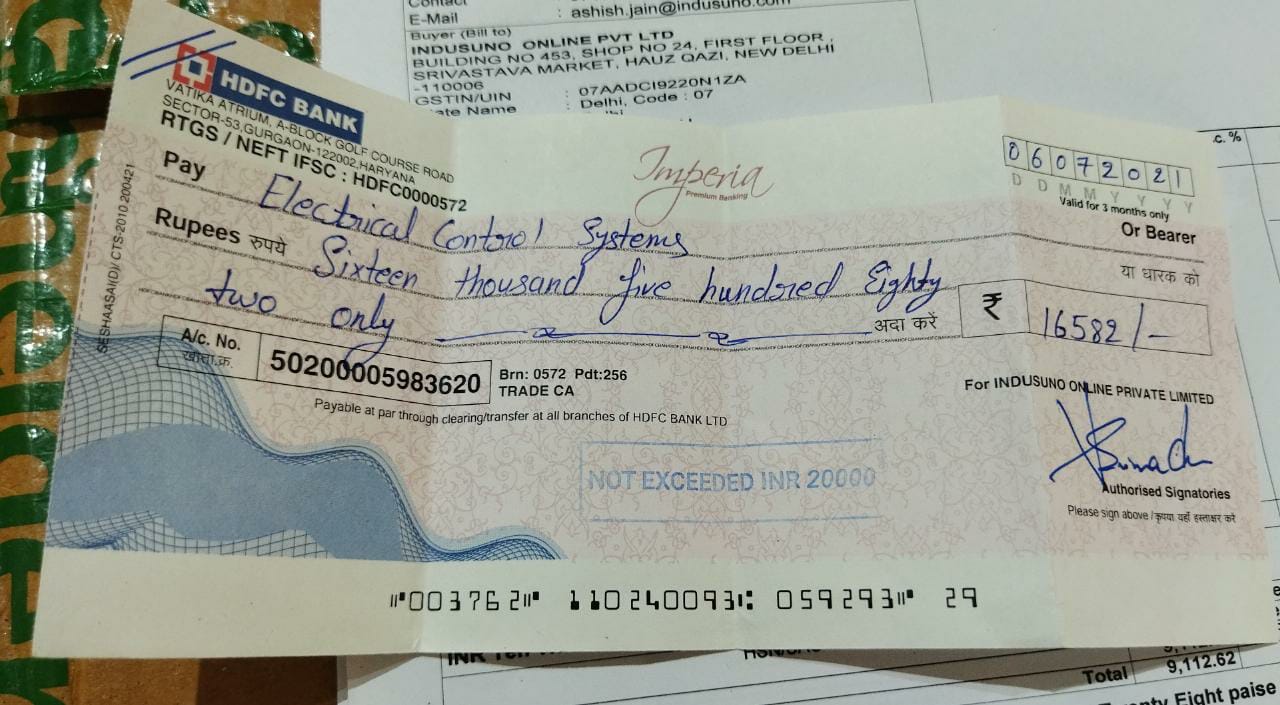 Contact
E-Mail : ashish.jain@indusuno.com
Buyer (Bill to)
INDUSUNO ONLINE PVT LTD
BUILDING NO 453, SHOP NO 24, FIRST FLOOR ,
SRIVASTAVA MARKET, HAUZ QAZI, NEW DELHI
-110006
GSTIN/UIN : 07AADCI9220N1ZA
ate Name : Delhi, Code : 07
c. %
HDFC BANK
VATIKA ATRIUM, A-BLOCK GOLF COURSE ROAD
SECTOR-53,GURGAON-122002,HARYANA
RTGS / NEFT IFSC : HDFC0000572
Imperia
Premium Banking
06072021
D D M M Y Y Y Y
Valid for 3 months only
Pay Electrical Control Systems Or Bearer
या धारक को
Rupees रुपये Sixteen thousand five hundred Eighty
two only अदा करें ₹ 16582/-
A/c. No. 50200005983620
खाता.क्र.
Brn: 0572 Pdt:256
TRADE CA
Payable at par through clearing/transfer at all branches of HDFC BANK LTD
For INDUSUNO ONLINE PRIVATE LIMITED
NOT EXCEEDED INR 20000
Authorised Signatories
Please sign above / कृपया यहाँ हस्ताक्षर करें
CTS-2010 200421
⑈003762⑈ 110240093⑆ 059293⑈ 29
Total 9,112.62
Eight paise